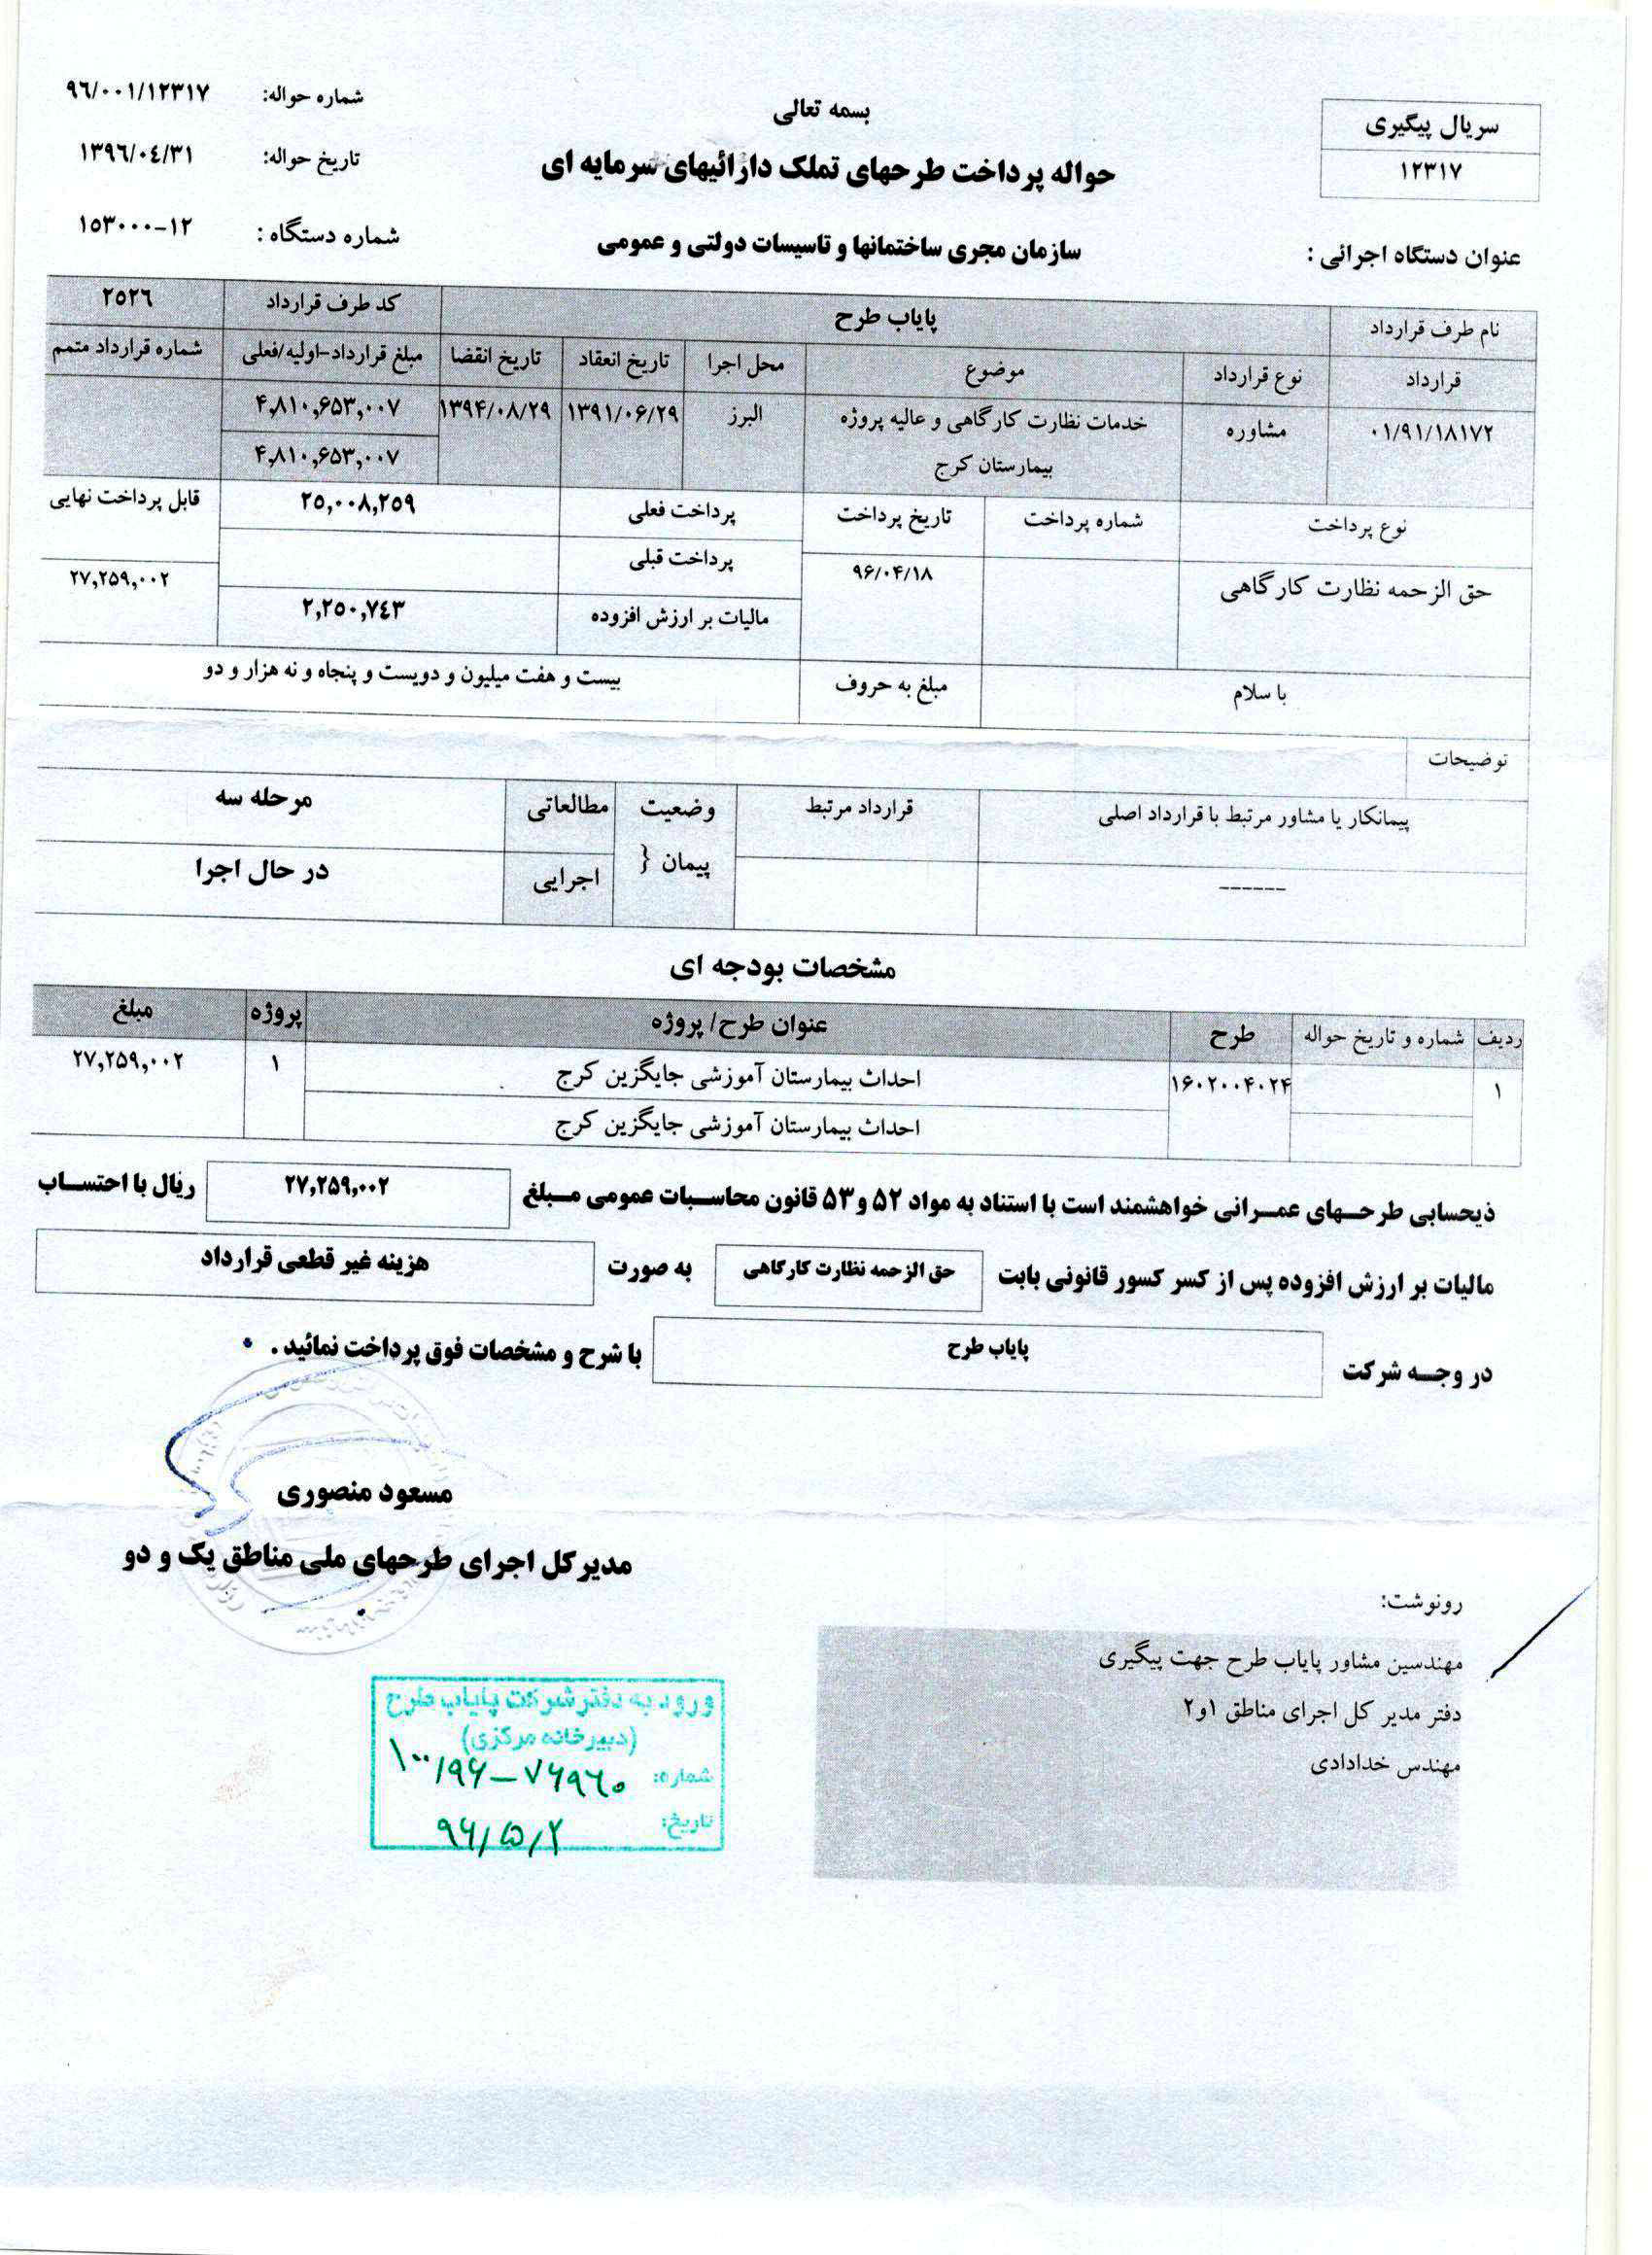 بسمه تعالی
سریال پیگیری
۱۲۳۱۷
شماره حواله: ۹٦/۰۰۱/۱۲۳۱۷
حواله پرداخت طرحهای تملک دارائیهای سرمایه ای
تاریخ حواله: ۱۳۹٦/۰٤/۳۱
عنوان دستگاه اجرائی : سازمان مجری ساختمانها و تاسیسات دولتی و عمومی
شماره دستگاه : ۱۵۳۰۰۰-۱۲
نام طرف قرارداد پایاب طرح کد طرف قرارداد ۲۵۲٦
قرارداد نوع قرارداد موضوع محل اجرا تاریخ انعقاد تاریخ انقضا مبلغ قرارداد-اولیه/فعلی شماره قرارداد متمم
۰۱/۹۱/۱۸۱۷۲ مشاوره خدمات نظارت کارگاهی و عالیه پروژه البرز ۱۳۹۱/۰۶/۲۹ ۱۳۹۴/۰۸/۲۹ ۴,۸۱۰,۶۵۳,۰۰۷
بیمارستان کرج ۴,۸۱۰,۶۵۳,۰۰۷
نوع پرداخت شماره پرداخت تاریخ پرداخت پرداخت فعلی ۲۵,۰۰۸,۲۵۹ قابل پرداخت نهایی
حق الزحمه نظارت کارگاهی ۹۶/۰۴/۱۸ پرداخت قبلی ۲۷,۲۵۹,۰۰۲
مالیات بر ارزش افزوده ۲,۲۵۰,۷٤۳
با سلام مبلغ به حروف بیست و هفت میلیون و دویست و پنجاه و نه هزار و دو
توضیحات
پیمانکار یا مشاور مرتبط با قرارداد اصلی قرارداد مرتبط وضعیت مطالعاتی مرحله سه
------ پیمان { اجرایی در حال اجرا
مشخصات بودجه ای
ردیف شماره و تاریخ حواله طرح عنوان طرح/ پروژه پروژه مبلغ
۱ ۱۶۰۲۰۰۴۰۲۴ احداث بیمارستان آموزشی جایگزین کرج ۱ ۲۷,۲۵۹,۰۰۲
احداث بیمارستان آموزشی جایگزین کرج
ذیحسابی طرحهای عمرانی خواهشمند است با استناد به مواد ۵۲ و ۵۳ قانون محاسبات عمومی مبلغ ۲۷,۲۵۹,۰۰۲ ریال با احتساب
مالیات بر ارزش افزوده پس از کسر کسور قانونی بابت حق الزحمه نظارت کارگاهی به صورت هزینه غیر قطعی قرارداد
در وجه شرکت پایاب طرح با شرح و مشخصات فوق پرداخت نمائید .
مسعود منصوری
مدیر کل اجرای طرحهای ملی مناطق یک و دو
رونوشت:
مهندسین مشاور پایاب طرح جهت پیگیری
دفتر مدیر کل اجرای مناطق ۱و۲
مهندس خدادادی
ورود به دفتر شرکت پایاب طرح
(دبیرخانه مرکزی)
شماره: ۱۰۰/۹۶-۷۶۹۶۰
تاریخ: ۹۶/۵/۲